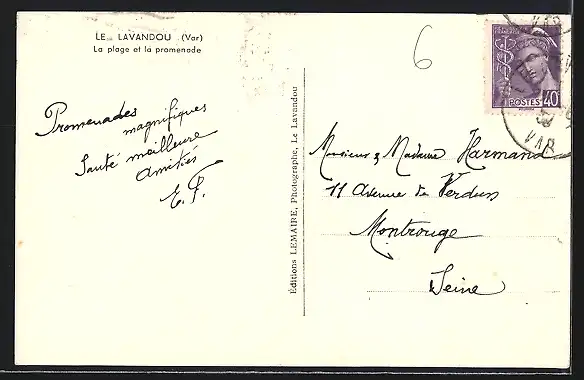 LE LAVANDOU (Var)
La plage et la promenade
Promenades
magnifiques
Santé meilleure
amitiés
E. P.
Editions LEMAIRE, Photographe, Le Lavandou
6
POSTES 40
VAR
VAR
Monsieur & Madame Harmand
11 Avenue de Verdun
Montrouge
Seine